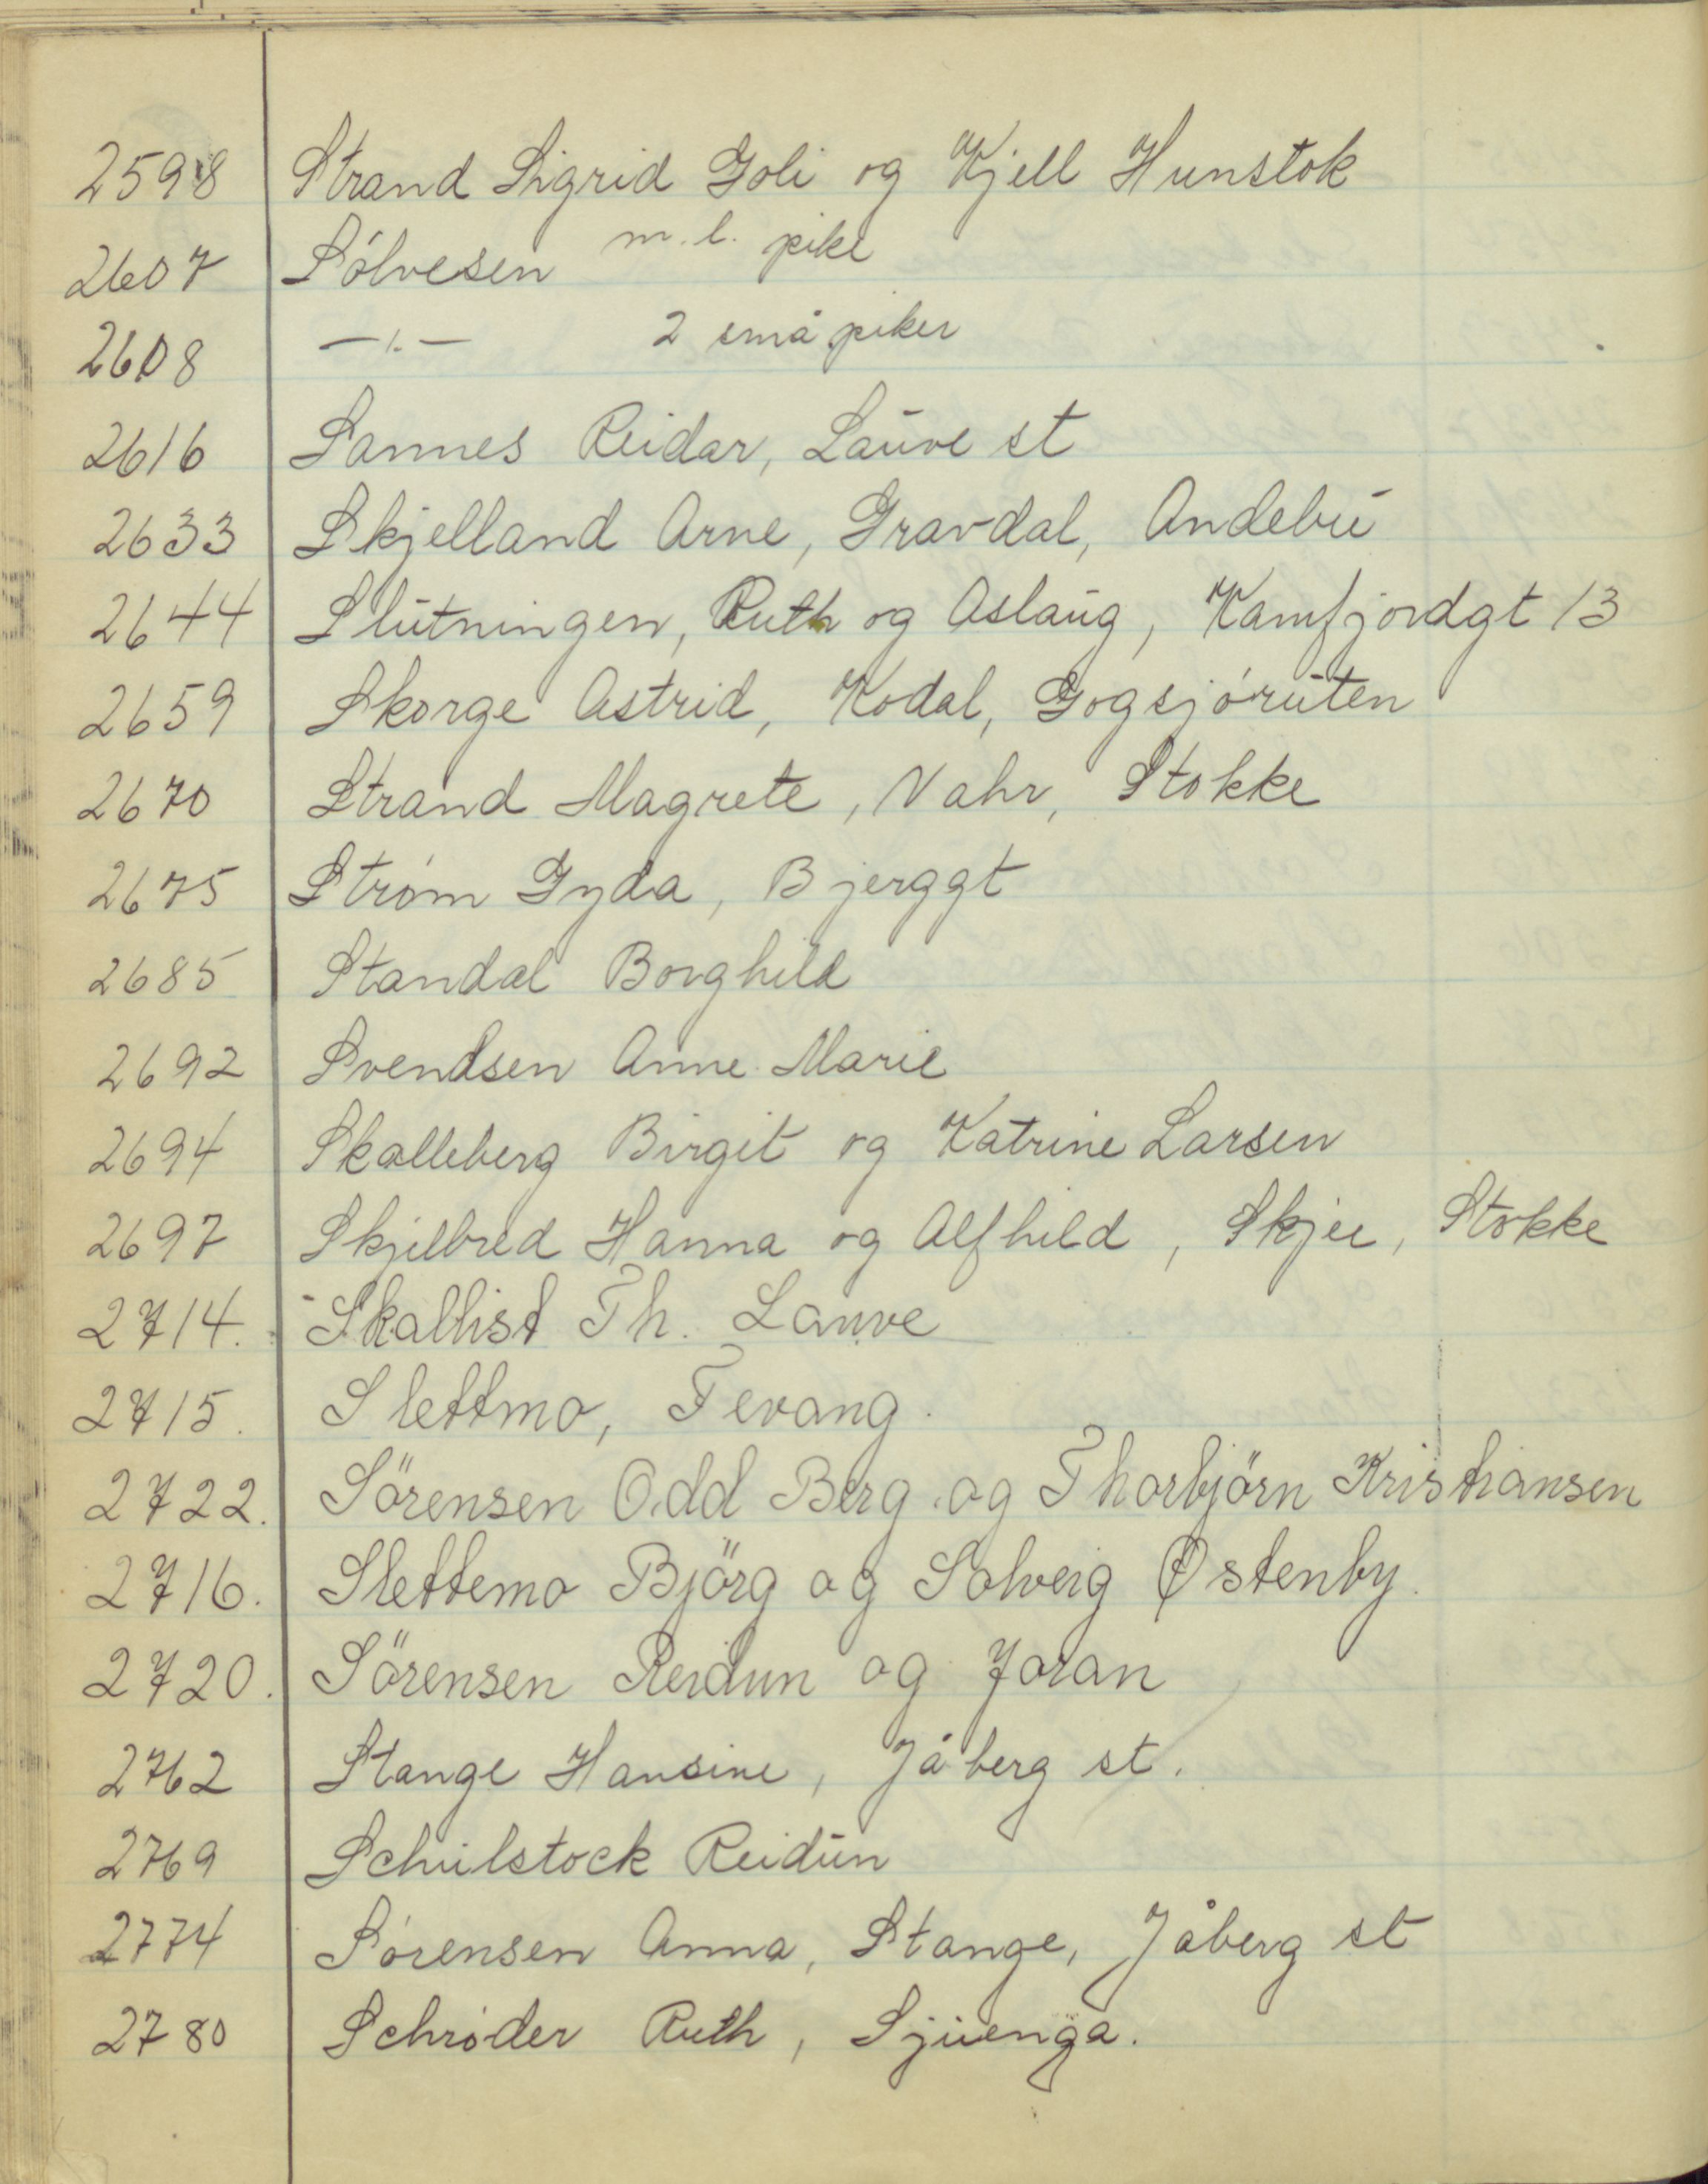 2598 Strand Sigrid Goli og Kjell Hunstok
2607 Sólvesen m.l. pike
2608 —"— 2 små piker
2616 Sannes Reidar, Lauve st
2633 Skjelland Arne, Gravdal, Andebu
2644 Slutningen, Ruth og Aslaug, Kamfjordgt 13
2659 Skorge Astrid, Kodal, Gogsjóruten
2670 Strand Magrete, Vahr, Stokke
2675 Stróm Gyda, Bjerggt
2685 Standal Borghild
2692 Svendsen Anne Marie
2694 Skalleberg Birgit og Katrine Larsen
2697 Skjelbred Hanna og Alfhild, Skjee, Stokke
2714. Skallist Th. Lauve
2715. Slettmo, Tevang.
2722. Sörensen Odd Berg og Thorbjörn Kristiansen
2716. Slettemo Björg og Solveig Østenby.
2720. Sörensen Reidun og Joran
2762 Stange Hansine, Jåberg st.
2769 Schulstock Reidun
2774 Sórensen Anna, Stange, Jåberg st
2780 Schróder Ruth, Sjuenga.